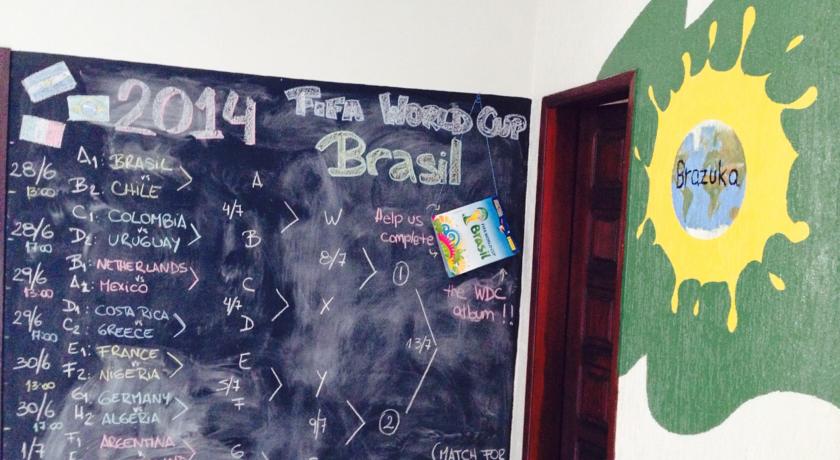 2014 FIFA WORLD CUP
Brasil
28/6 A1: BRASIL
vs
13:00 B2: CHILE
A
28/6 C1: COLOMBIA
vs
17:00 D2: URUGUAY
4/7
B
29/6 B1: NETHERLANDS
vs
13:00 A2: MEXICO
C
29/6 D1: COSTA RICA
vs
17:00 C2: GREECE
4/7
D
30/6 E1: FRANCE
vs
13:00 F2: NIGERIA
E
30/6 G1: GERMANY
vs
17:00 H2: ALGERIA
5/7
F
1/7 F1: ARGENTINA
G
W
8/7
X
Y
9/7
1
13/7
2
Help us
complete
Brasil
the WDC
album !!
(MATCH FOR
Brazuka